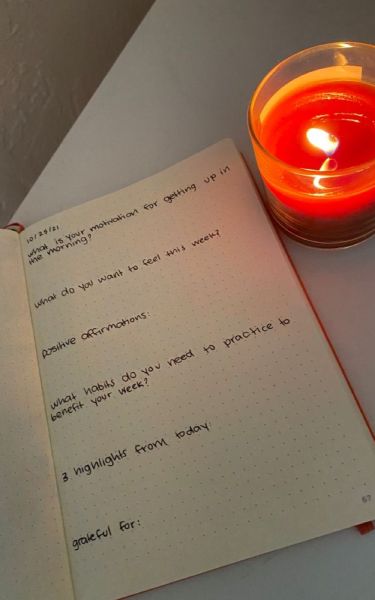 10/29/21
what is your motivation for getting up in
the morning?
what do you want to feel this week?
positive affirmations:
what habits do you need to practice to
benefit your week?
3 highlights from today:
grateful for:
57